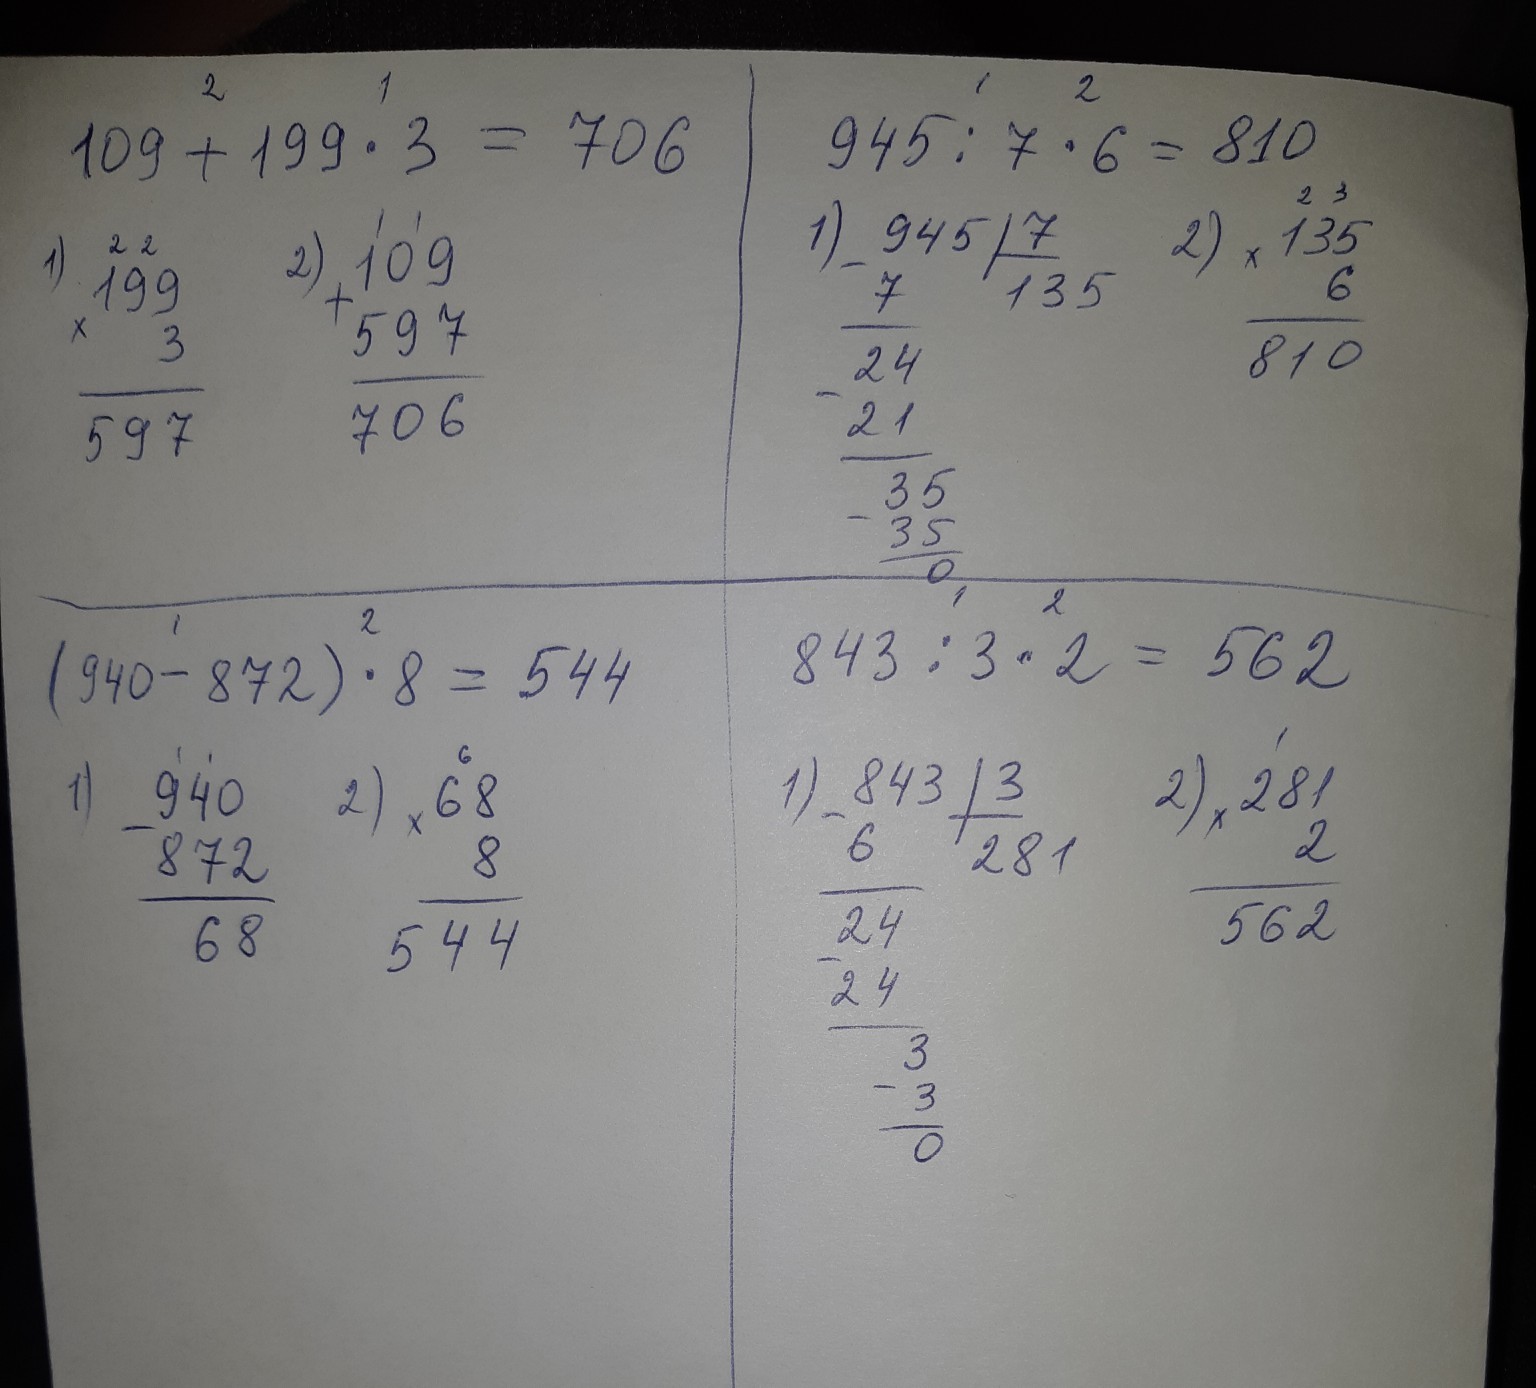 2 1
109 + 199 · 3 = 706
1) 2 2
199
× 3
597
2) 1 1
109
+ 597
706
1 2
945 : 7 · 6 = 810
1) - 945 | 7
7 135
24
- 21
35
- 35
0
2) 2 3
× 135
6
810
1 2
(940 - 872) · 8 = 544
1) 1 1
940
- 872
68
2) 6
× 68
8
544
1 2
843 : 3 · 2 = 562
1) - 843 | 3
6 281
24
- 24
3
- 3
0
2) 1
× 281
2
562